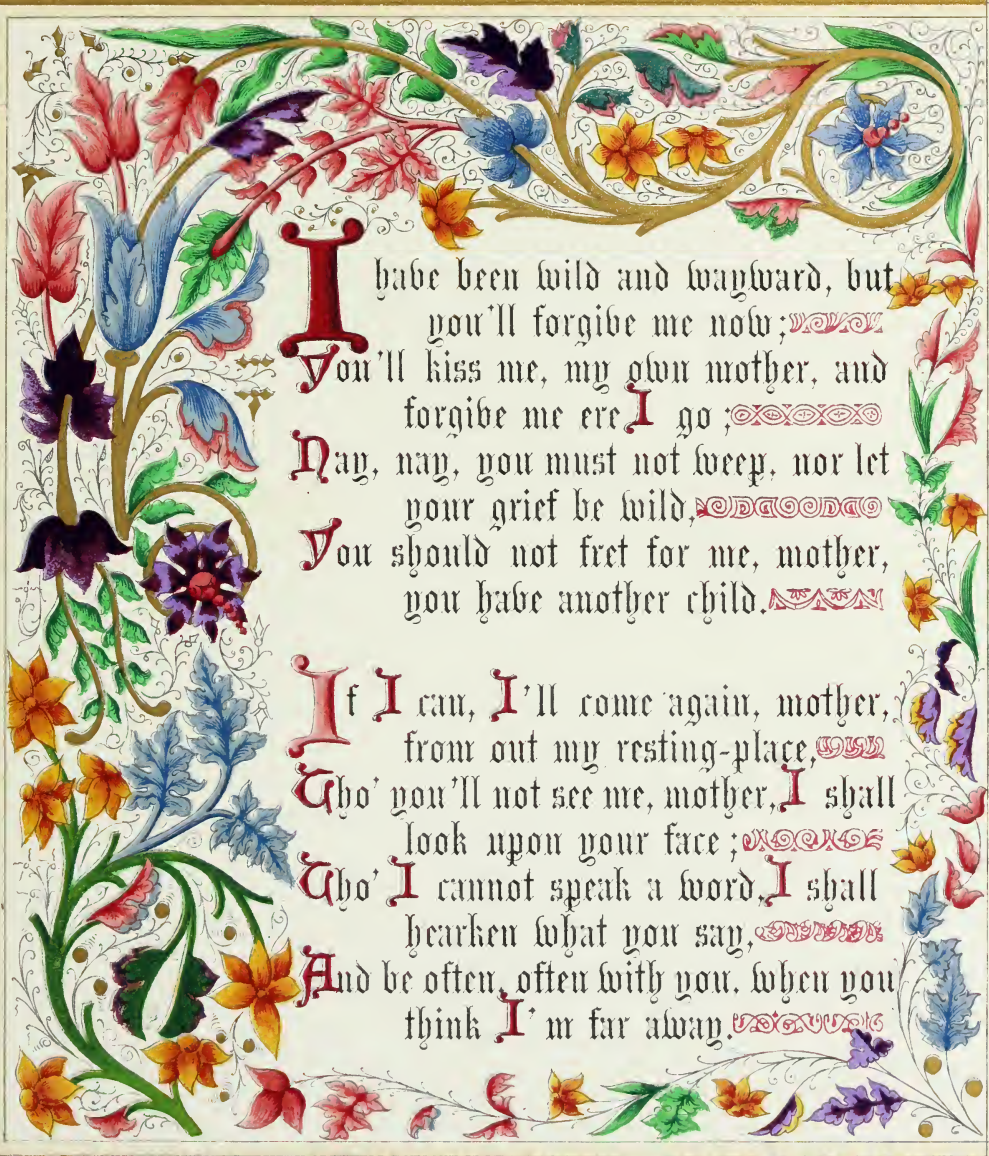 I have been wild and wayward, but
you'll forgive me now;
You'll kiss me, my own mother, and
forgive me ere I go;
Nay, nay, you must not weep, nor let
your grief be wild,
You should not fret for me, mother,
you have another child.
If I can, I'll come again, mother,
from out my resting-place,
Tho' you'll not see me, mother, I shall
look upon your face;
Tho' I cannot speak a word, I shall
hearken what you say,
And be often, often with you, when you
think I'm far away.